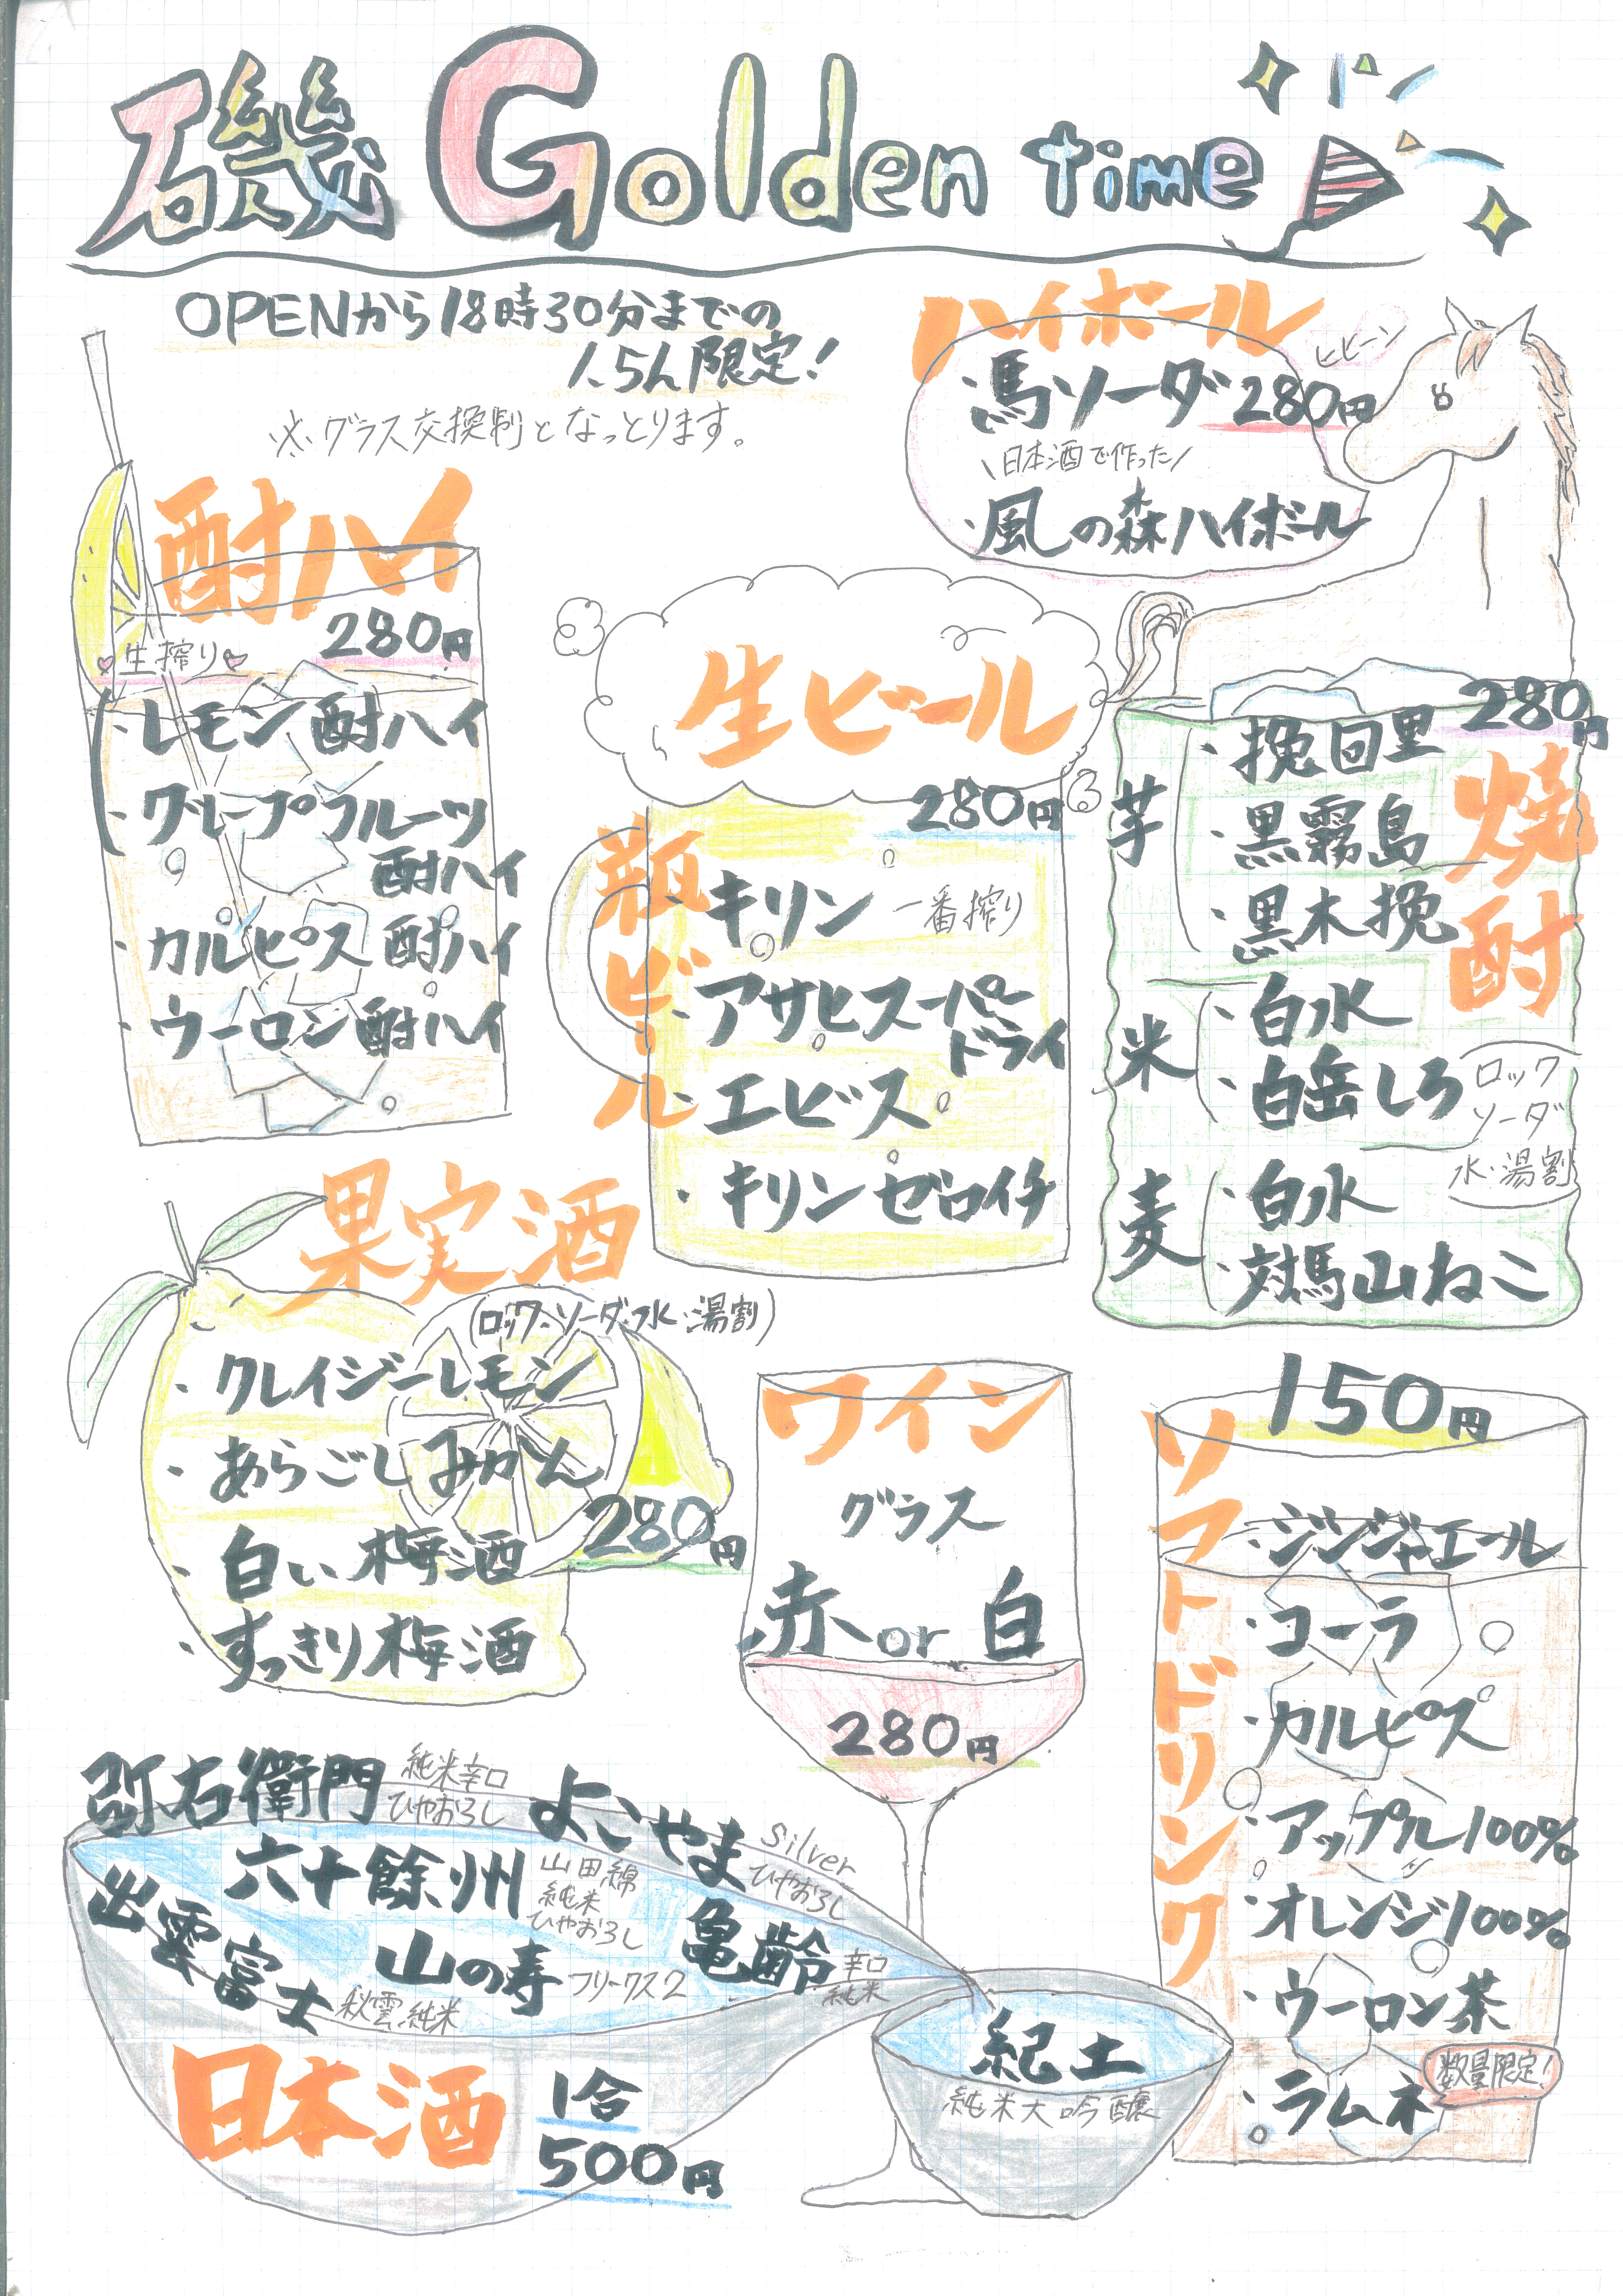 磯 Golden time
OPENから18時30分までの
1、5h限定!
※グラス交換制となっとります。
ハイボール
ヒヒーン
・馬ソーダ 280円
\日本酒で作った/
・風の森ハイボール
酎ハイ
280円
生搾り
・レモン酎ハイ
・グレープフルーツ
酎ハイ
・カルピス酎ハイ
・ウーロン酎ハイ
生ビール
280円
瓶ビール
・キリン 一番搾り
・アサヒスーパー
ドライ
・エビス
・キリンゼロイチ
280円
焼酎
芋
・挽回里
・黒霧島
・黒木挽
米
・白水
・白岳しろ
麦
・白水
・対馬山ねこ
ロック
ソーダ
水・湯割
果実酒
(ロック・ソーダ・水・湯割)
・クレイジーレモン
・あらごしみかん
・白い梅酒
・すっきり梅酒
280円
ワイン
グラス
赤 or 白
280円
150円
ソフトドリンク
・ジンジャエール
・コーラ
・カルピス
・アップル100%
・オレンジ100%
・ウーロン茶
・ラムネ 数量限定!
弥右衛門 純米辛口
ひやおろし
よこやま Silver
ひやおろし
六十餘州 山田錦
純米
ひやおろし
出雲富士 秋雲純米
山の寿 フリークス2
亀齢 辛口
純米
紀土
純米大吟醸
日本酒
1合
500円